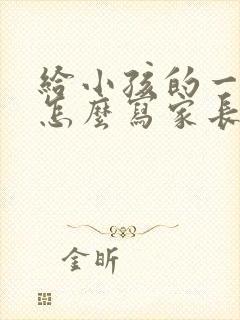 給小孩的一
怎麼寫家長
金昕